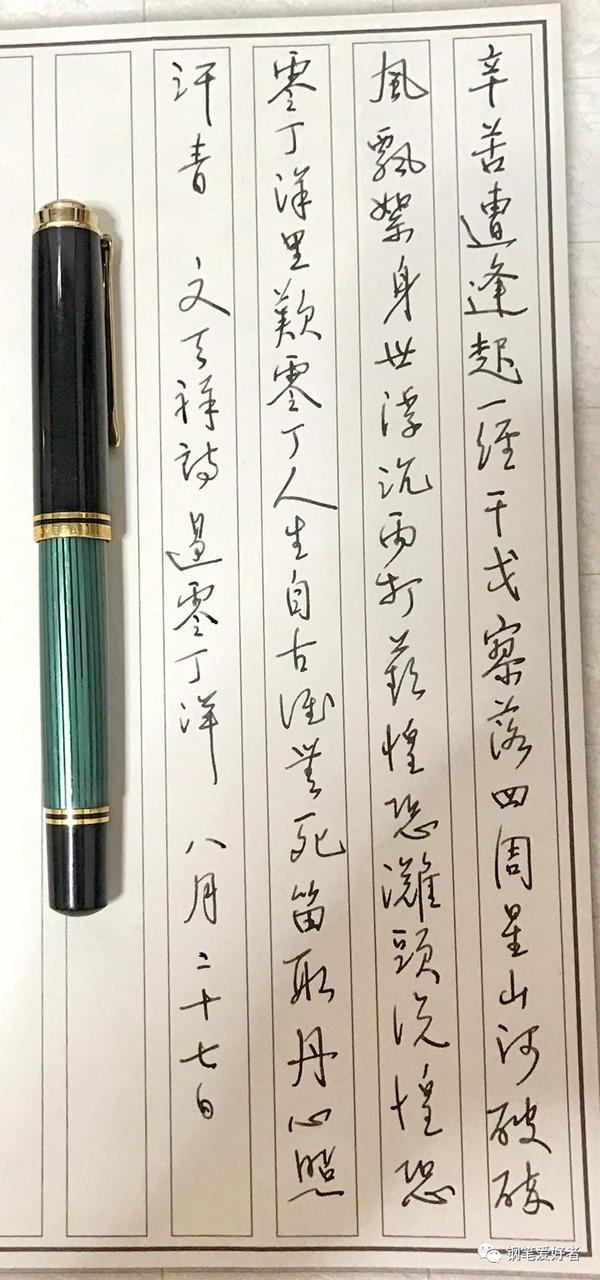 辛苦遭逢起一經干戈寥落四周星山河破碎
風飄絮身世浮沉雨打萍惶恐灘頭說惶恐
零丁洋里歎零丁人生自古誰無死留取丹心照
汗青 文天祥詩 過零丁洋 八月二十七日
钢笔爱好者